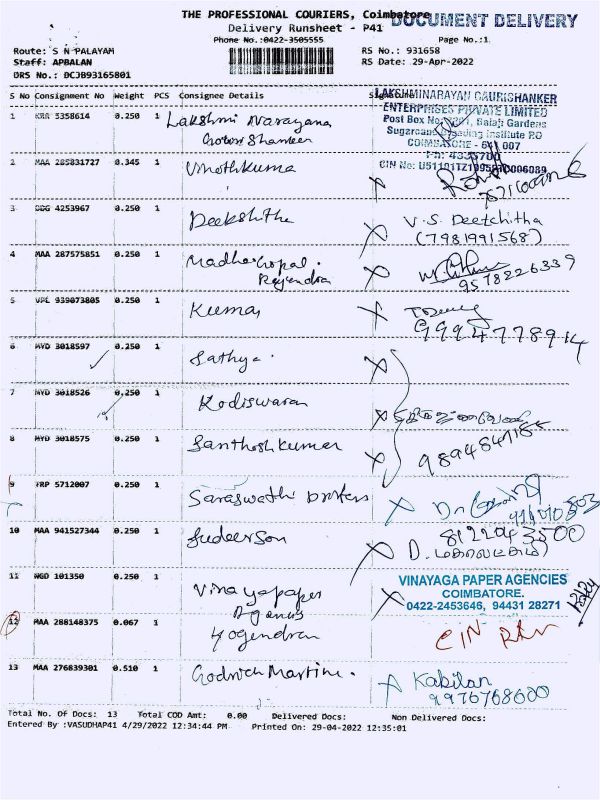 THE PROFESSIONAL COURIERS, Coimbatore
DOCUMENT DELIVERY
Delivery Runsheet - P41
Phone No.:0422-3505555
Page No.:1
Route: S N PALAYAM
RS No.: 931658
Staff: APBALAN
RS Date: 29-Apr-2022
DRS No.: DCJB93165801
S No Consignment No Weight PCS Consignee Details Signature
LAKSHMINARAYAN GAURISHANKER
ENTERPRISES PRIVATE LIMITED
Post Box No: Balaji Gardens
Sugarcane Breeding Institute PO
COIMBATORE - 641 007
Ph: 4335700
CIN No:
1 KRA 5358614 0.250 1 Lakshmi Narayana
2 MAA 285831727 0.345 1 Vinothkuma
3 DDG 4253967 0.250 1 Deekshitha V.S. Deetchitha
(7981991568)
4 MAA 287575851 0.250 1 Madhangopal.
Rajendra 9578226339
5 VPL 939073805 0.250 1 Kumar
9994778914
6 HYD 3018597 0.250 1 Sathya.
7 HYD 3018526 0.250 1 Kodiswaran
8 HYD 3018575 0.250 1 Santhoshkumar
9 TRP 5712007 0.250 1 Saraswathi
10 MAA 941527344 0.250 1 Sudeerson 8122043500
D.
11 NGD 101350 0.250 1 Vinayapaper
VINAYAGA PAPER AGENCIES
COIMBATORE.
0422-2453646, 94431 28271
12 MAA 288148375 0.067 1 Yogendran
13 MAA 276839301 0.510 1 Godrich Martin. Kabilan
9976768600
Total No. Of Docs: 13 Total COD Amt: 0.00 Delivered Docs: Non Delivered Docs:
Entered By :VASUDHAP41 4/29/2022 12:34:44 PM Printed On: 29-04-2022 12:35:01